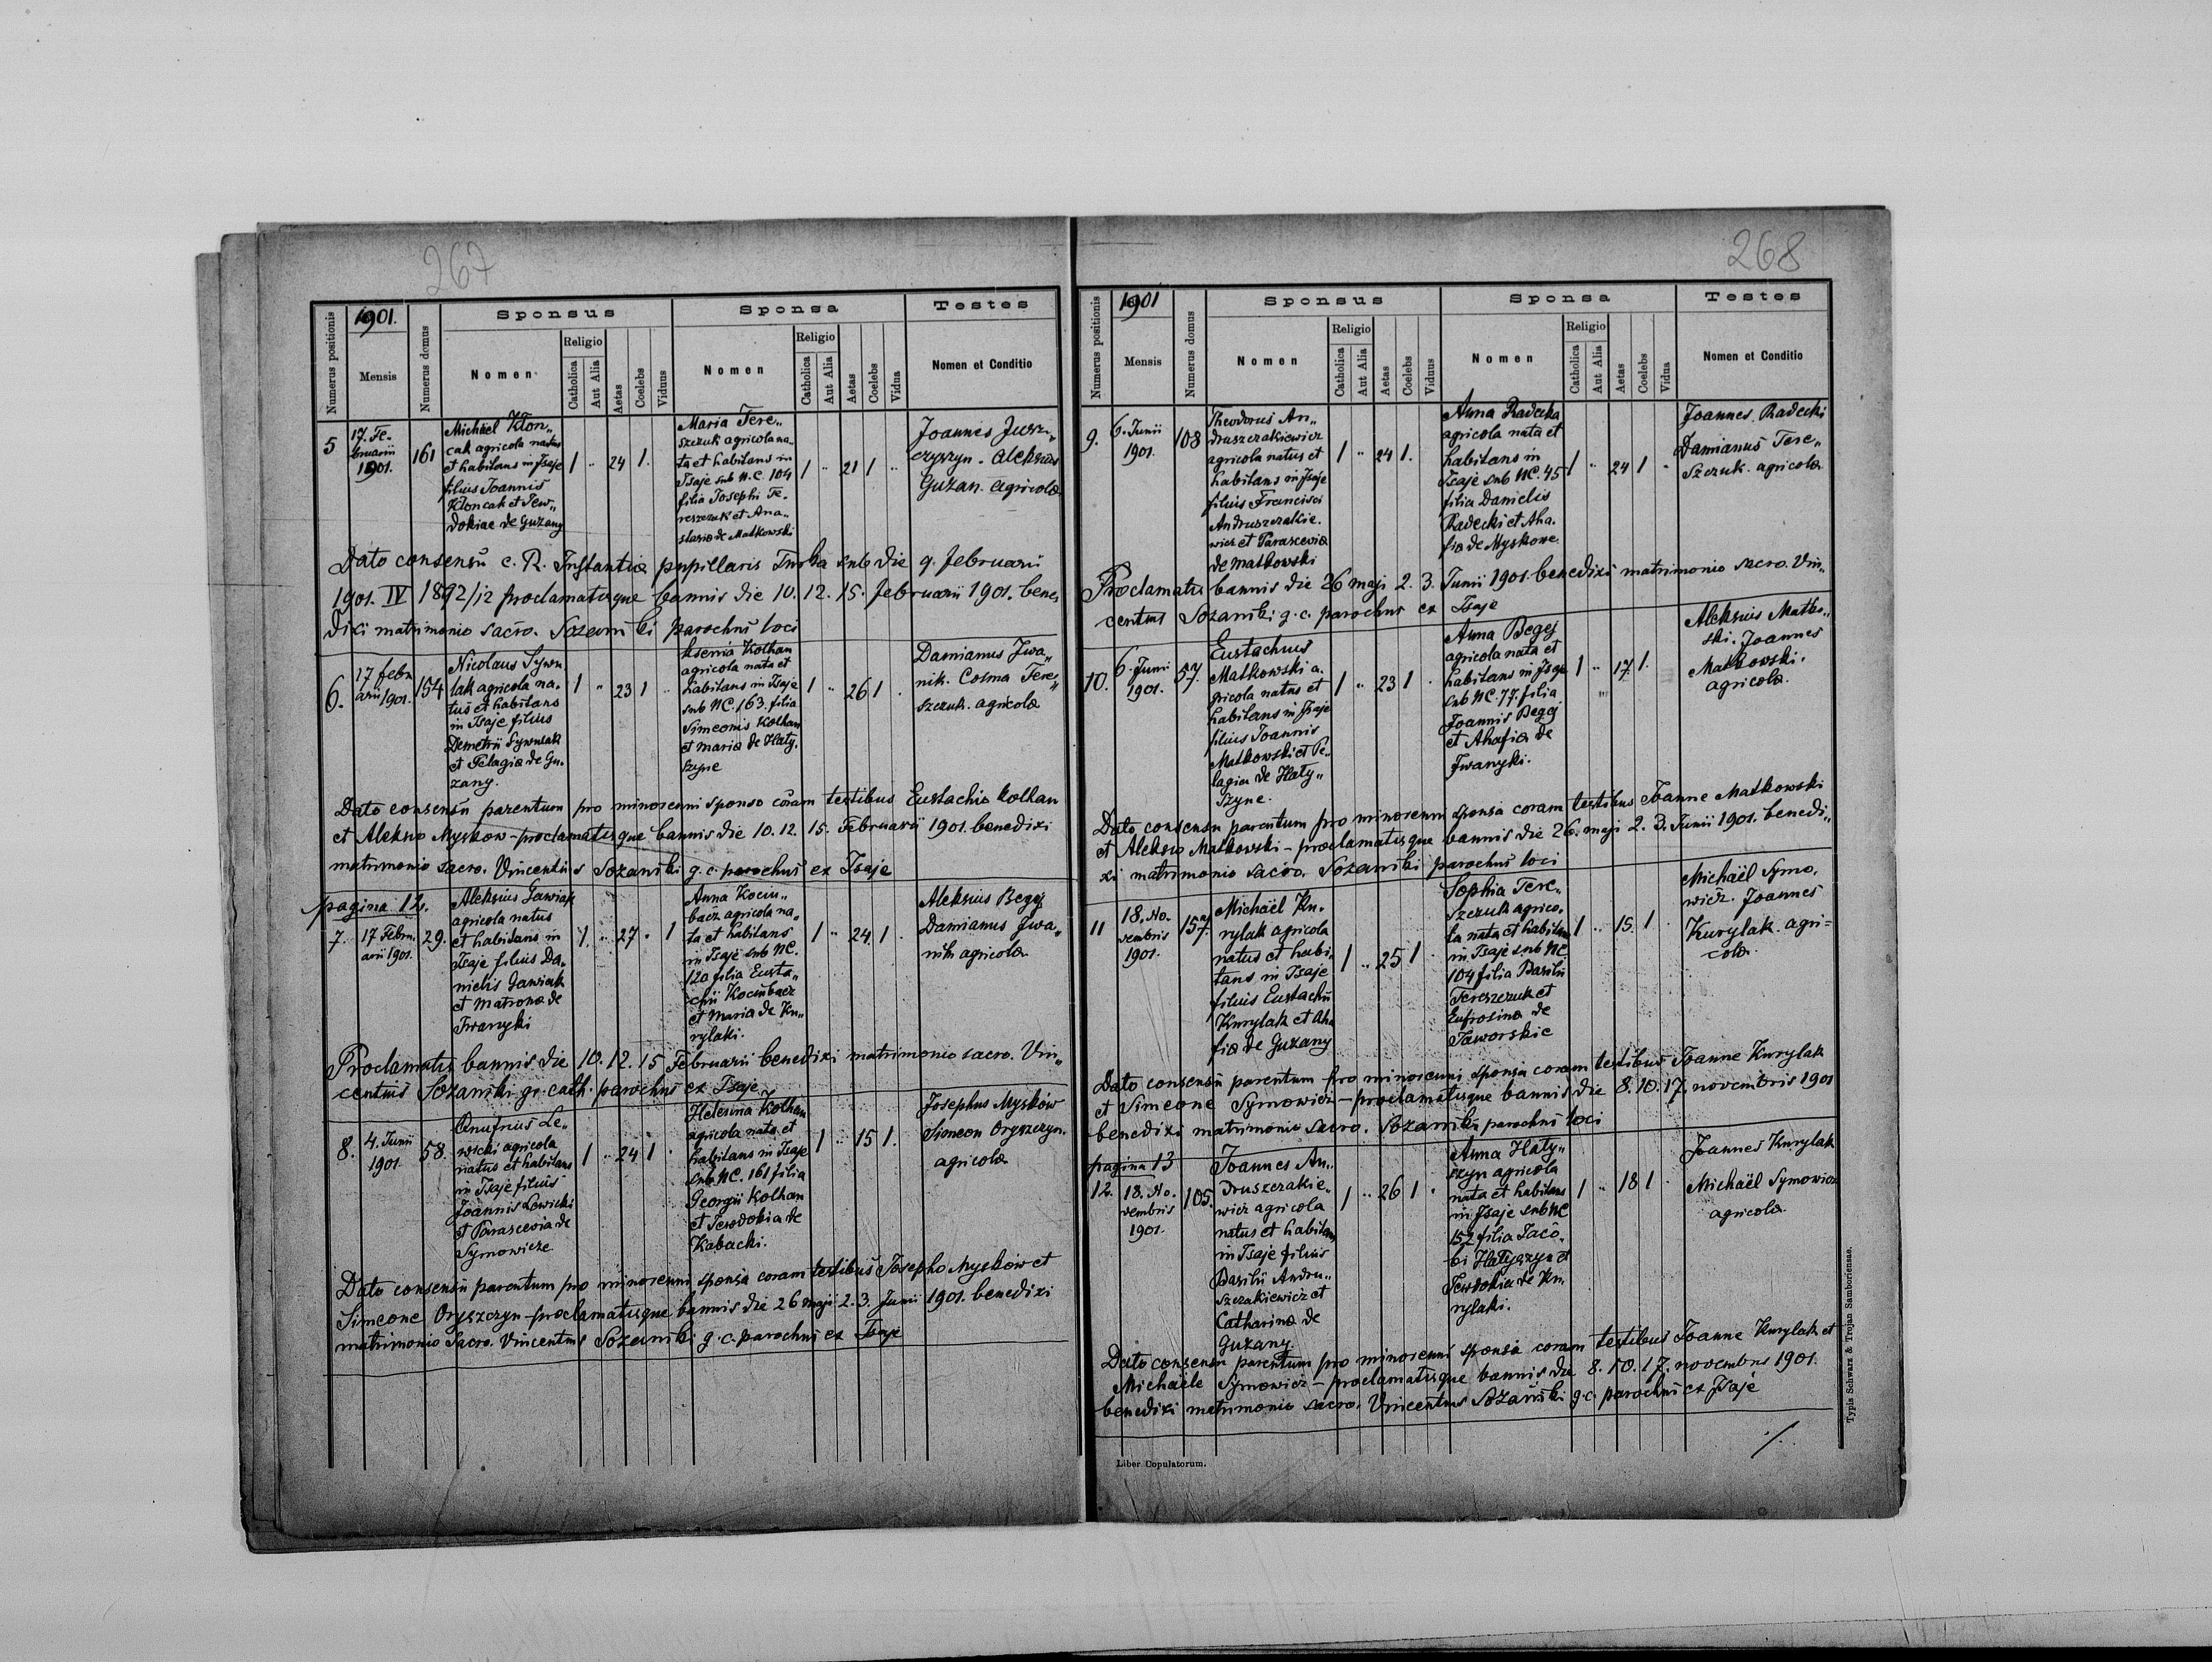 267
Numerus positionis
1901.
Mensis
Numerus domus
Sponsus
Nomen
Religio
Catholica
Aut Alia
Aetas
Coelebs
Viduus
Sponsa
Nomen
Religio
Catholica
Aut Alia
Aetas
Coelebs
Vidua
Testes
Nomen et Conditio
5
17. Fe-
bruarii
1901.
161
Michaël Klon„
cak agricola natus
et habitans in Isaje
filius Joannis
Kloncak et Jew„
dokiae de Guzany
1 „ 24 1.
Maria Tere„
szczuk agricola na„
ta et habitans in
Isaje sub N.C. 104
filia Josephi Te„
reszczuk et Ana„
stasia de Matkowski
1 „ 21 1 „
Joannes Jusz„
czyszyn. Aleksius
Guzan. agricola
Dato consensu c. R. Instantia pupillaris Turka sub die 9. februarii
1901. IV 1892/12 proclamatisque bannis die 10. 12. 15. februarii 1901. bene„
dixi matrimonio sacro. Sozanski parochus loci
6.
17 febru
arii 1901.
154
Nicolaus Sywu
lak agricola na„
tus et habitans
in Isaje filius
Demetrii Sywulak
et Pelagia de Gu„
zany.
1 „ 23 1 „
Ksenia Kolhan
agricola nata et
habitans in Isaje
sub NC. 163. filia
Simeonis Kolhan
et Maria de Haty„
szyne
1 „ 26 1 .
Damianus Iwa„
nik. Cosma Tere„
szczuk. agricola
Dato consensu parentum pro minorenni sponso coram testibus Eustachio Kolhan
et Aleksio Myskow - proclamatisque bannis die 10. 12. 15. Februarii 1901. benedixi
matrimonio sacro. Vincentius Sozanski g. c. parochus ex Isaje
pagina 12.
7.
17 Febru„
arii 1901.
29.
Aleksius Gawiak
agricola natus
et habitans in
Isaje filius Da„
nielis Gawiak
et Matrona de
Iwanyki
1. „ 27 „ 1
Anna Kociu„
bacz agricola na„
ta et habitans
in Isaje sub NC.
120 filia Eusta„
chii Kociubacz
et Maria de Ku„
rylaki.
1 „ 24 1 .
Aleksius Begej
Damianus Iwa„
nik agricola
Proclamatis bannis die 10. 12. 15 Februarii benedixi matrimonio sacro. Vin„
centius Sozanski gr. cath. parochus ex Isaje
8.
4. Junii
1901.
58.
Onufrius Le„
wicki agricola
natus et habitans
in Isaje filius
Joannis Lewicki
et Parascevia de
Symowicze
1 „ 24 1 „
Helena Kolhan
agricola nata et
habitans in Isaje
sub NC. 161 filia
Georgii Kolhan
et Jewdokia de
Kabacki.
1 „ 15 1.
Josephus Myskow
Simeon Oryszczyn.
agricola
Dato consensu parentum pro minorenni sponsa coram testibus Josepho Myskow et
Simeone Oryszczyn - proclamatisque bannis die 26 maji 2. 3. Junii 1901. benedixi
matrimonio sacro. Vincentius Sozanski g. c. parochus ex Isaje
268
Numerus positionis
1901
Mensis
Numerus domus
Sponsus
Nomen
Religio
Catholica
Aut Alia
Aetas
Coelebs
Viduus
Sponsa
Nomen
Religio
Catholica
Aut Alia
Aetas
Coelebs
Vidua
Testes
Nomen et Conditio
9.
6. Junii
1901.
108
Theodorus An„
druszczakiewicz
agricola natus et
habitans in Isaje
filius Francisci
Andruszczakie„
wicz et Parascevia
de Matkowski
1 „ 24 1.
Anna Radecka
agricola nata et
habitans in
Isaje sub NC. 45
filia Danielis
Radecki et Aha„
fia de Myskowe
1 „ 24 1 „
Joannes Radecki
Damianus Tere„
szczuk. agricola
Proclamatis bannis die 26 maji 2. 3. Junii 1901. benedixi matrimonio sacro. Vin„
centius Sozanski g. c. parochus ex Isaje
10.
6. Junii
1901.
57.
Eustachius
Matkowski a„
gricola natus et
habitans in Isaje
filius Joannis
Matkowski et Pe„
lagia de Haty„
szyne.
1 „ 23 1 .
Anna Begej
agricola nata et
habitans in Isaje
sub NC. 77. filia
Joannis Begej
et Ahafia de
Iwanyki.
1 „ 17 1.
Aleksius Matko„
ski. Joannes
Matkowski.
agricola.
Dato consensu parentum pro minorenni sponsa coram testibus Joanne Matkowski
et Aleksio Matkowski - proclamatisque bannis die 26. maji 2. 3. Junii 1901. benedi„
xi matrimonio sacro. Sozanski parochus loci
11
18. No„
vembris
1901.
157.
Michaël Ku„
rylak agricola
natus et habi„
tans in Isaje
filius Eustachii
Kurylak et Aha
fia de Guzany
1 „ 25 1 .
Sophia Tere„
szczuk agrico„
la nata et habitans
in Isaje sub NC
104 filia Basilii
Tereszczuk et
Eufrosina de
Jaworskie
1 „ 15 1 .
Michaël Symo„
wicz. Joannes
Kurylak. agri=
cola
Dato consensu parentum pro minorenni sponsa coram testibus Joanne Kurylak
et Simeone Symowicz - proclamatisque bannis die 8. 10. 17. novembris 1901
benedixi matrimonio sacro. Sozanski parochus loci
pagina 13
12.
18. No„
vembris
1901.
105.
Joannes An„
druszczakie„
wicz agricola
natus et habitans
in Isaje filius
Basilii Andru„
szczakiewicz et
Catharina de
Guzany.
1 „ 26 1 „
Anna Haty„
szyn agricola
nata et habitans
in Isaje sub NC
152 filia Jaco„
bi Hatyszyn et
Jewdokia de Ku„
rylaki.
1 „ 18 1 .
Joannes Kurylak
Michaël Symowicz
agricola.
Dato consensu parentum pro minorenni sponsa coram testibus Joanne Kurylak et
Michaële Symowicz - proclamatisque bannis die 8. 10. 17. novembris 1901.
benedixi matrimonio sacro. Vincentius Sozanski g. c. parochus ex Isaje
Liber Copulatorum.
Typis Schwarz & Trojan Samboriensae.